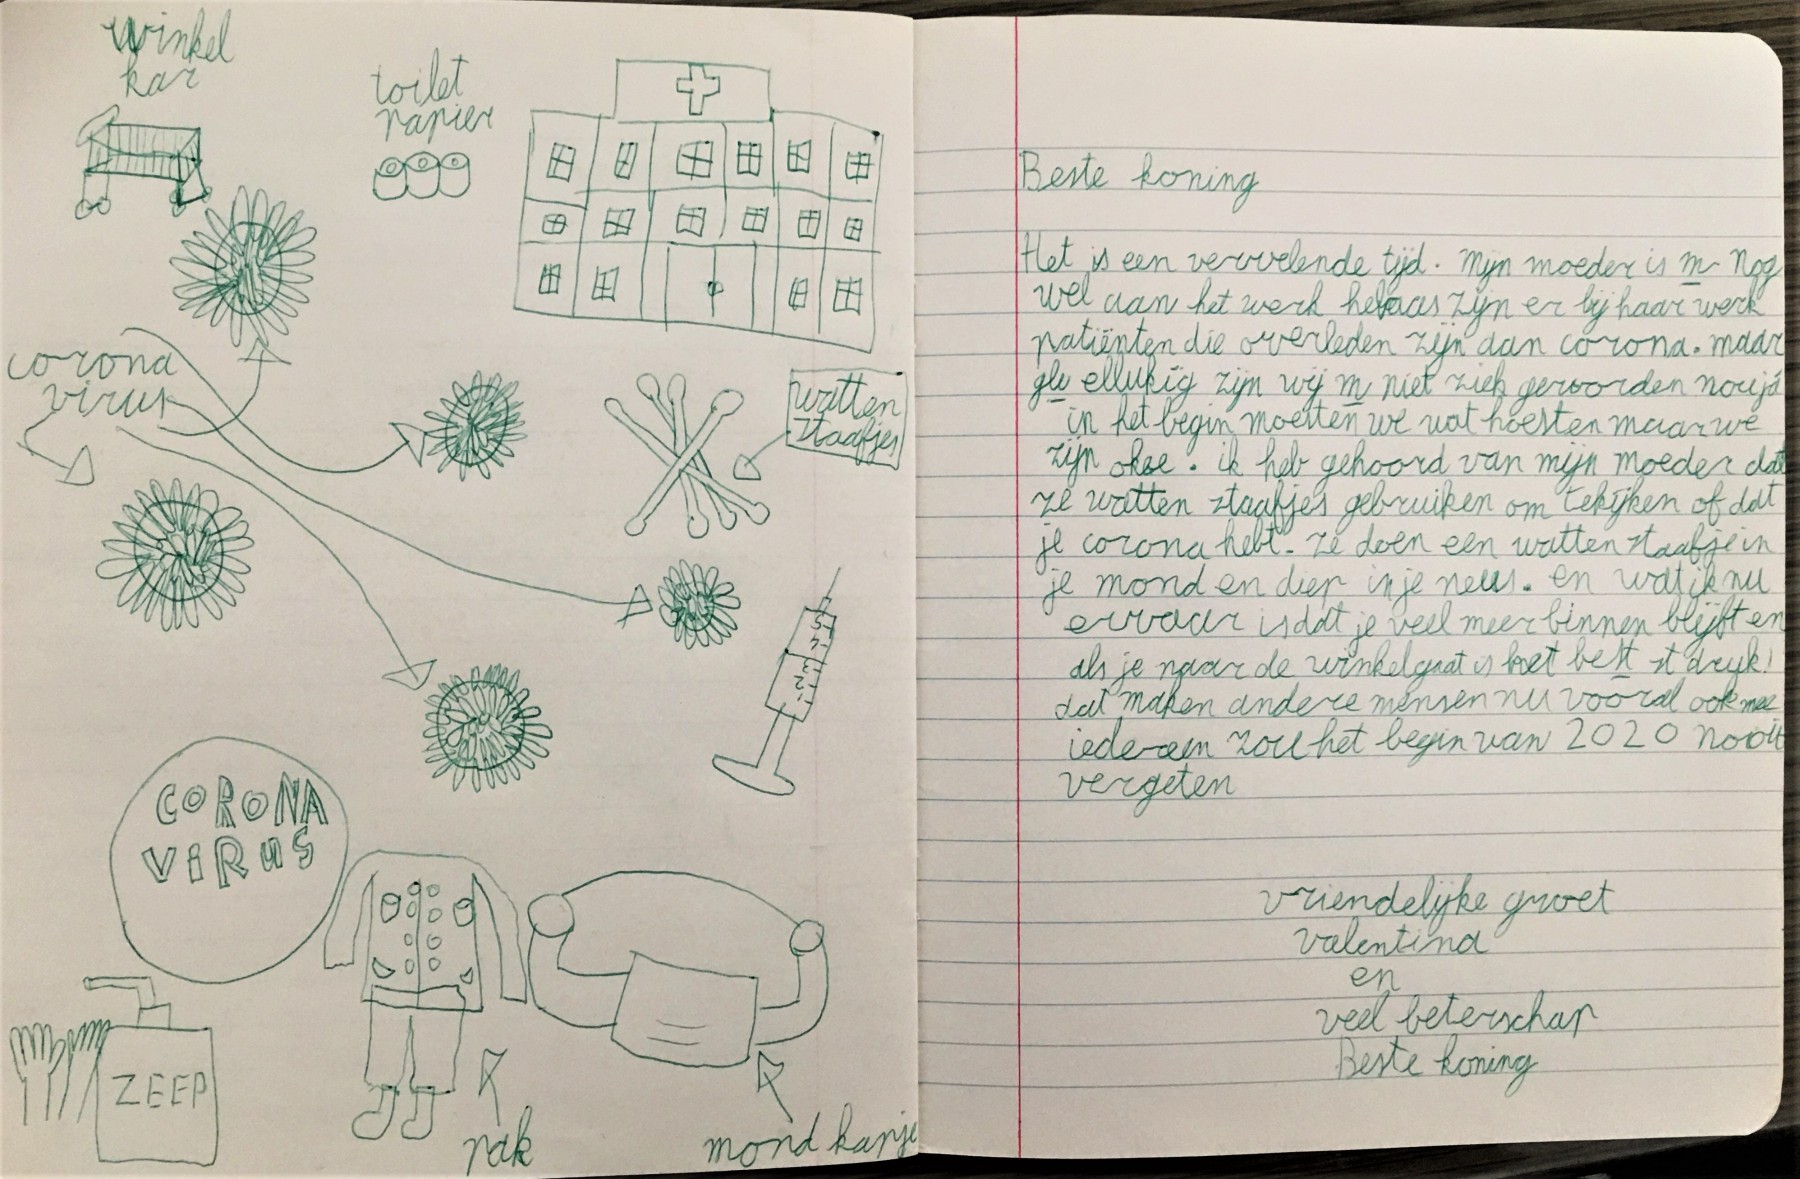 winkel
kar
toilet
papier
corona
virus
watten
staafjes
5
4
3
2
CORONA
ViRuS
ZEEP
pak
mond kapje
Beste koning
Het is een vervelende tijd. Mijn moeder is m nog
wel aan het werk helaas zijn er bij haar werk
patiënten die overleden zijn aan corona. maar
glu ellukig zijn wij m niet ziek geworden nouja
in het begin moesten we wat hoesten maar we
zijn oke. ik heb gehoord van mijn moeder dat
ze watten staafjes gebruiken om tekijken of dat
je corona hebt. ze doen een watten staafje in
je mond en diep in je neus. en wat ik nu
ervaar is dat je veel meer binnen blijft en
als je naar de winkel gaat is het best st druk!
dat maken andere mensen nu vooral ook mee
iedereen zou het begin van 2020 nooit
vergeten
vriendelijke groet
valentina
en
veel beterschap
Beste koning